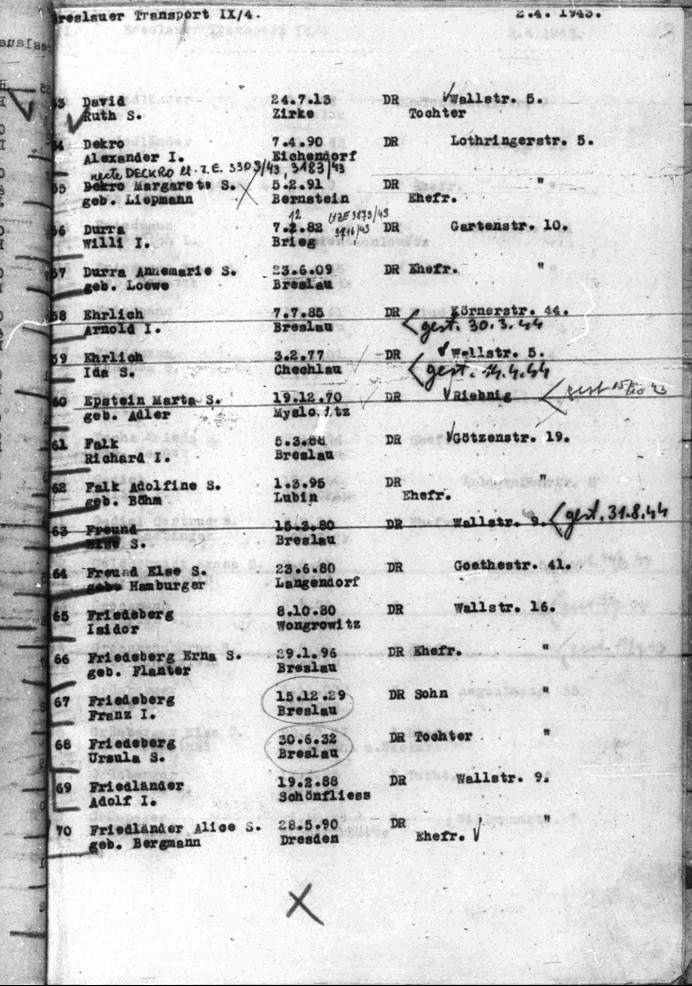 Breslauer Transport IX/4. 2.4. 1943.
53 David 24.7.13 DR Wallstr. 5.
Ruth S. Zirke Tochter
54 Dekro 7.4.90 DR Lothringerstr. 5.
Alexander I. Eichendorf
recte DECKRO lt. Z.E. 3303/43, 3183/43
55 Dekro Margarete S. 5.2.91 DR "
geb. Liepmann Bernstein Ehefr.
12
56 Durra 7.2.82 DR Gartenstr. 10.
Willi I. Brieg
57 Durra Annemarie S. 23.6.09 DR Ehefr. "
geb. Loewe Breslau
58 Ehrlich 7.7.85 DR Körnerstr. 44.
Arnold I. Breslau gest. 30.3.44
59 Ehrlich 3.2.77 DR Wallstr. 5.
Ida S. Chechlau gest. 14.4.44
60 Epstein Marta S. 19.12.70 DR Riebnig gest
geb. Adler
61 Falk DR Götzenstr. 19.
Richard I. Breslau
62 Falk Adolfine S. 1.3.95 DR "
geb. Böhm Lubin Ehefr.
63 Freund 15.3.80 DR Wallstr. 9. gest. 31.8.44
Else S. Breslau
64 Freund Else S. 23.6.80 DR Goethestr. 41.
geb. Hamburger Langendorf
65 Friedeberg 8.10.80 DR Wallstr. 16.
Isidor Wongrowitz
66 Friedeberg Erna S. 29.1.96 DR Ehefr. "
geb. Flanter Breslau
67 Friedeberg 15.12.29 DR Sohn "
Franz I. Breslau
68 Friedeberg 30.6.32 DR Tochter "
Ursula S. Breslau
69 Friedländer 19.2.88 DR Wallstr. 9.
Adolf I. Schönfliess
70 Friedländer Alice S. 28.5.90 DR "
geb. Bergmann Dresden Ehefr.